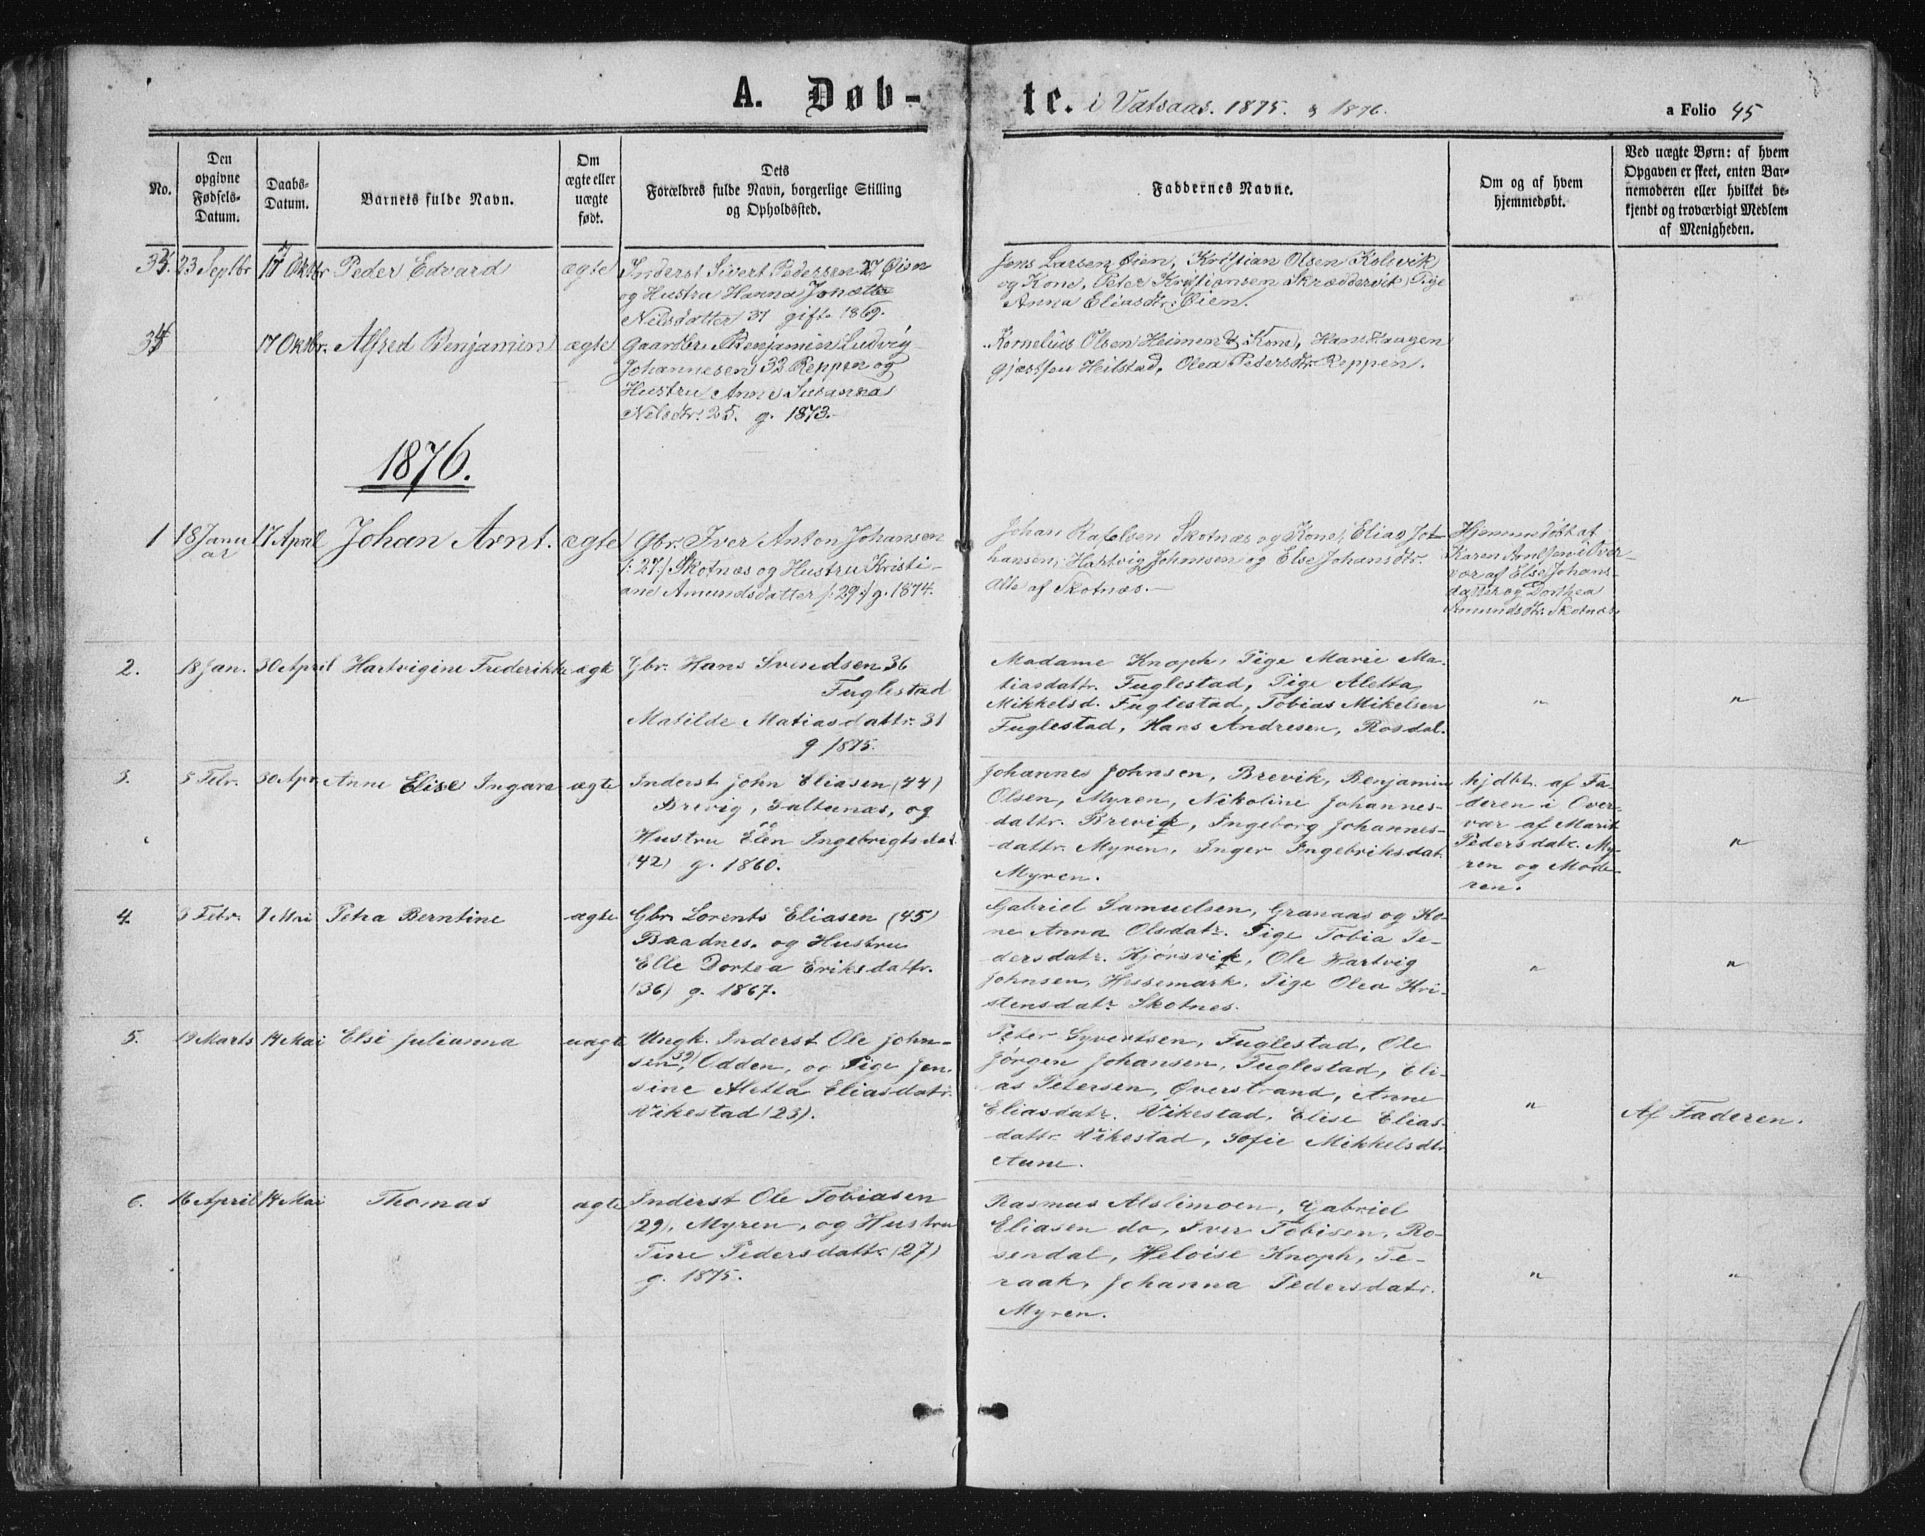 A. Døb-te. i Vatsaas. 1875. & 1876.
a Folio 45
No.
Den opgivne Fødsels-Datum.
Daabs-Datum.
Barnets fulde Navn.
Om ægte eller uægte født.
Dets Forældres fulde Navn, borgerlige Stilling og Opholdssted.
Faddernes Navne.
Om og af hvem hjemmedøbt.
Ved uægte Børn: af hvem Opgaven er skeet, enten Barnemoderen eller hvilket bekjendt og troværdigt Medlem af Menigheden.
23 Septbr
17 Oktbr
Peder Edvard
ægte
Inderst Sivert Pedersen 27 Øien
og Hustru Hanna Jonette
Nilsdatter 31 gift 1869.
Jens Larsen Øien, Kristian Olsen Kolsvik
og Kone, Peter Kristiansen Skræddervik, Pige
Anna Eliasdtr. Øien.
17 Oktbr.
Alfred Benjamin
ægte
Gaardbr. Benjamin Ludvig
Johannesen 32 Reppen og
Hustru Anne Susanna
Nelsdtr. 25. g. 1873.
Kornelius Olsen Heimen & Kone, Hans Haagen
Heilstad, Olea Pedersdtr. Reppen.
1876.
1
18 Januar
17 April
Johan Arnt.
ægte
Gbr. Iver Anton Johansen
/: 27:/ Skotnæs og Hustru Kristi-
ane Amundsdatter /: 29:/ g. 1874.
Johan Skotnæs og Kone, Elias Jo-
hansen, Hartvig Johnsen og Else Johansdtr.
Alle af Skotnæs.
Hjemmedøbt af
Karen Arntsen i Over-
vær af Else Johans-
datter og Dorthea
Amundsdtr. Skotnæs.
2.
18 Jan.
30 April
Hartvigine Frederikke
ægte
Gbr. Hans Svendsen 36
Fuglestad
Matilde Matiasdattr. 31
g 1875.
Madame Knoph, Pige Marie Ma-
tiasdattr. Fuglestad, Pige Aletta
Mikkelsd. Fuglestad, Tobias Mikelsen
Fuglestad, Hans Andresen, Rosdal.
"
"
3.
5 Febr.
30 Apr.
Anne Elise Ingara
ægte
Inderst John Eliasen (44)
Brevig, Saltenæs, og
Hustru Elen Ingebrigtsdat.
(42) g. 1860.
Johannes Johnsen, Brevik, Benjamin
Olsen, Myren, Nikoline Johannes-
dattr. Brevik, Ingeborg Johannes-
dattr. Myren, Inger Ingebriksdat.
Myren.
hjdbt. af Fa-
deren i Over-
vær af Marit
Pedersdatr. My-
ren og Mode-
ren.
"
4.
Febr.
7 Mai
Petra Berntine
ægte
Gbr. Lorents Eliasen (45)
Baadnes. og Hustru
Elle Dortea Eriksdattr.
(36) g. 1867.
Gabriel Samuelsen, Granaas og Ko-
ne Anna Olsdatr. Pige Tobia Pe-
dersdatr. Kjørsvik, Ole Hartvig
Johnsen, Hessemark, Pige Olea Kri-
stensdatr Skotnes.
"
"
5.
19 Marts
14 Mai
Elsi Julianna
uægte
Ungk. Inderst Ole John-
sen (39), Odden, og Pige Jen-
sine Aletta Eliasdatr.
Vikestad (23).
Peter Syvertsen, Fuglestad, Ole
Jørgen Johansen, Fuglestad, Eli-
as Petersen, Øverstrand, Anne
Eliasdatr. Vikestad, Elise Elias-
dattr. Vikestad, Sofie Mikkelsdtr
Aune.
"
Af Faderen.
6.
16 April
14 Mai
Thomas
ægte
Inderst Ole Tobiasen
(29), Myren, og Hustru
Tine Pedersdattr. (27)
g. 1875.
Rasmus Alslimoen, Gabriel
Eliasen do, Iver Tobisen, Ro-
sendal, Heloise Knoph, Te-
raak, Johanna Pedersdatr.
Myren.
"
"